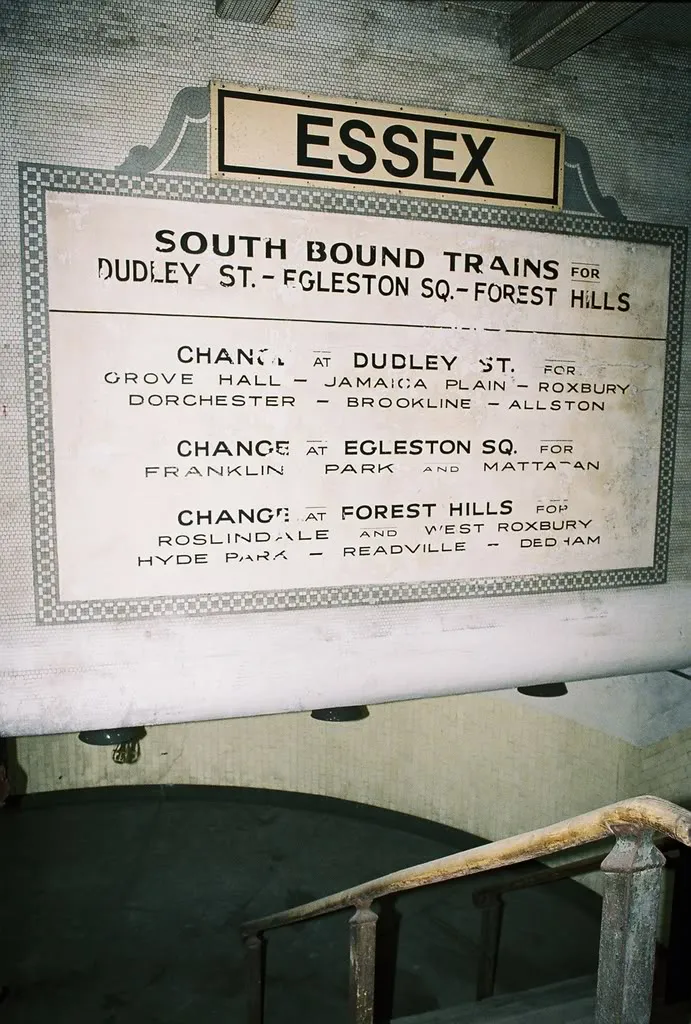 ESSEX
SOUTH BOUND TRAINS FOR
DUDLEY ST. - EGLESTON SQ. - FOREST HILLS
CHANGE AT DUDLEY ST. FOR
GROVE HALL - JAMAICA PLAIN - ROXBURY
DORCHESTER - BROOKLINE - ALLSTON
CHANGE AT EGLESTON SQ. FOR
FRANKLIN PARK AND MATTAPAN
CHANGE AT FOREST HILLS FOR
ROSLINDALE AND WEST ROXBURY
HYDE PARK - READVILLE - DEDHAM